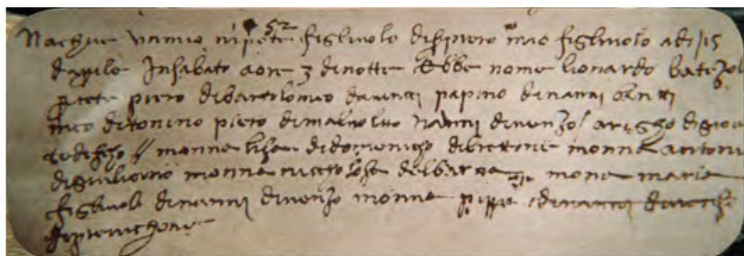 52
Nachue un mio nipote figliuolo di ser piero mio figliuolo adi 15
daprile in sabato a ore 3 di notte Ebbe nome lionardo batezolo
prete piero di bartolomeo da vinci papino di nanni banti
meo di tonino piero di malvolto nanni di venzo arigho di giova
tedescho monna lisa di domenicho di brettone monna antonia
di giuliano monna nicholosa del barna mona maria
figliuola di nanni di venzo monna pippa di nanni
di previchone